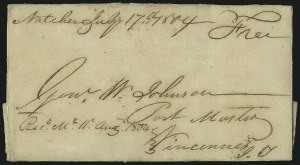 Natchez July 17th 1804
Free
Genl. W. Johnson
Post Master
Recd. Augt. 1804
Vincennes
I. T.